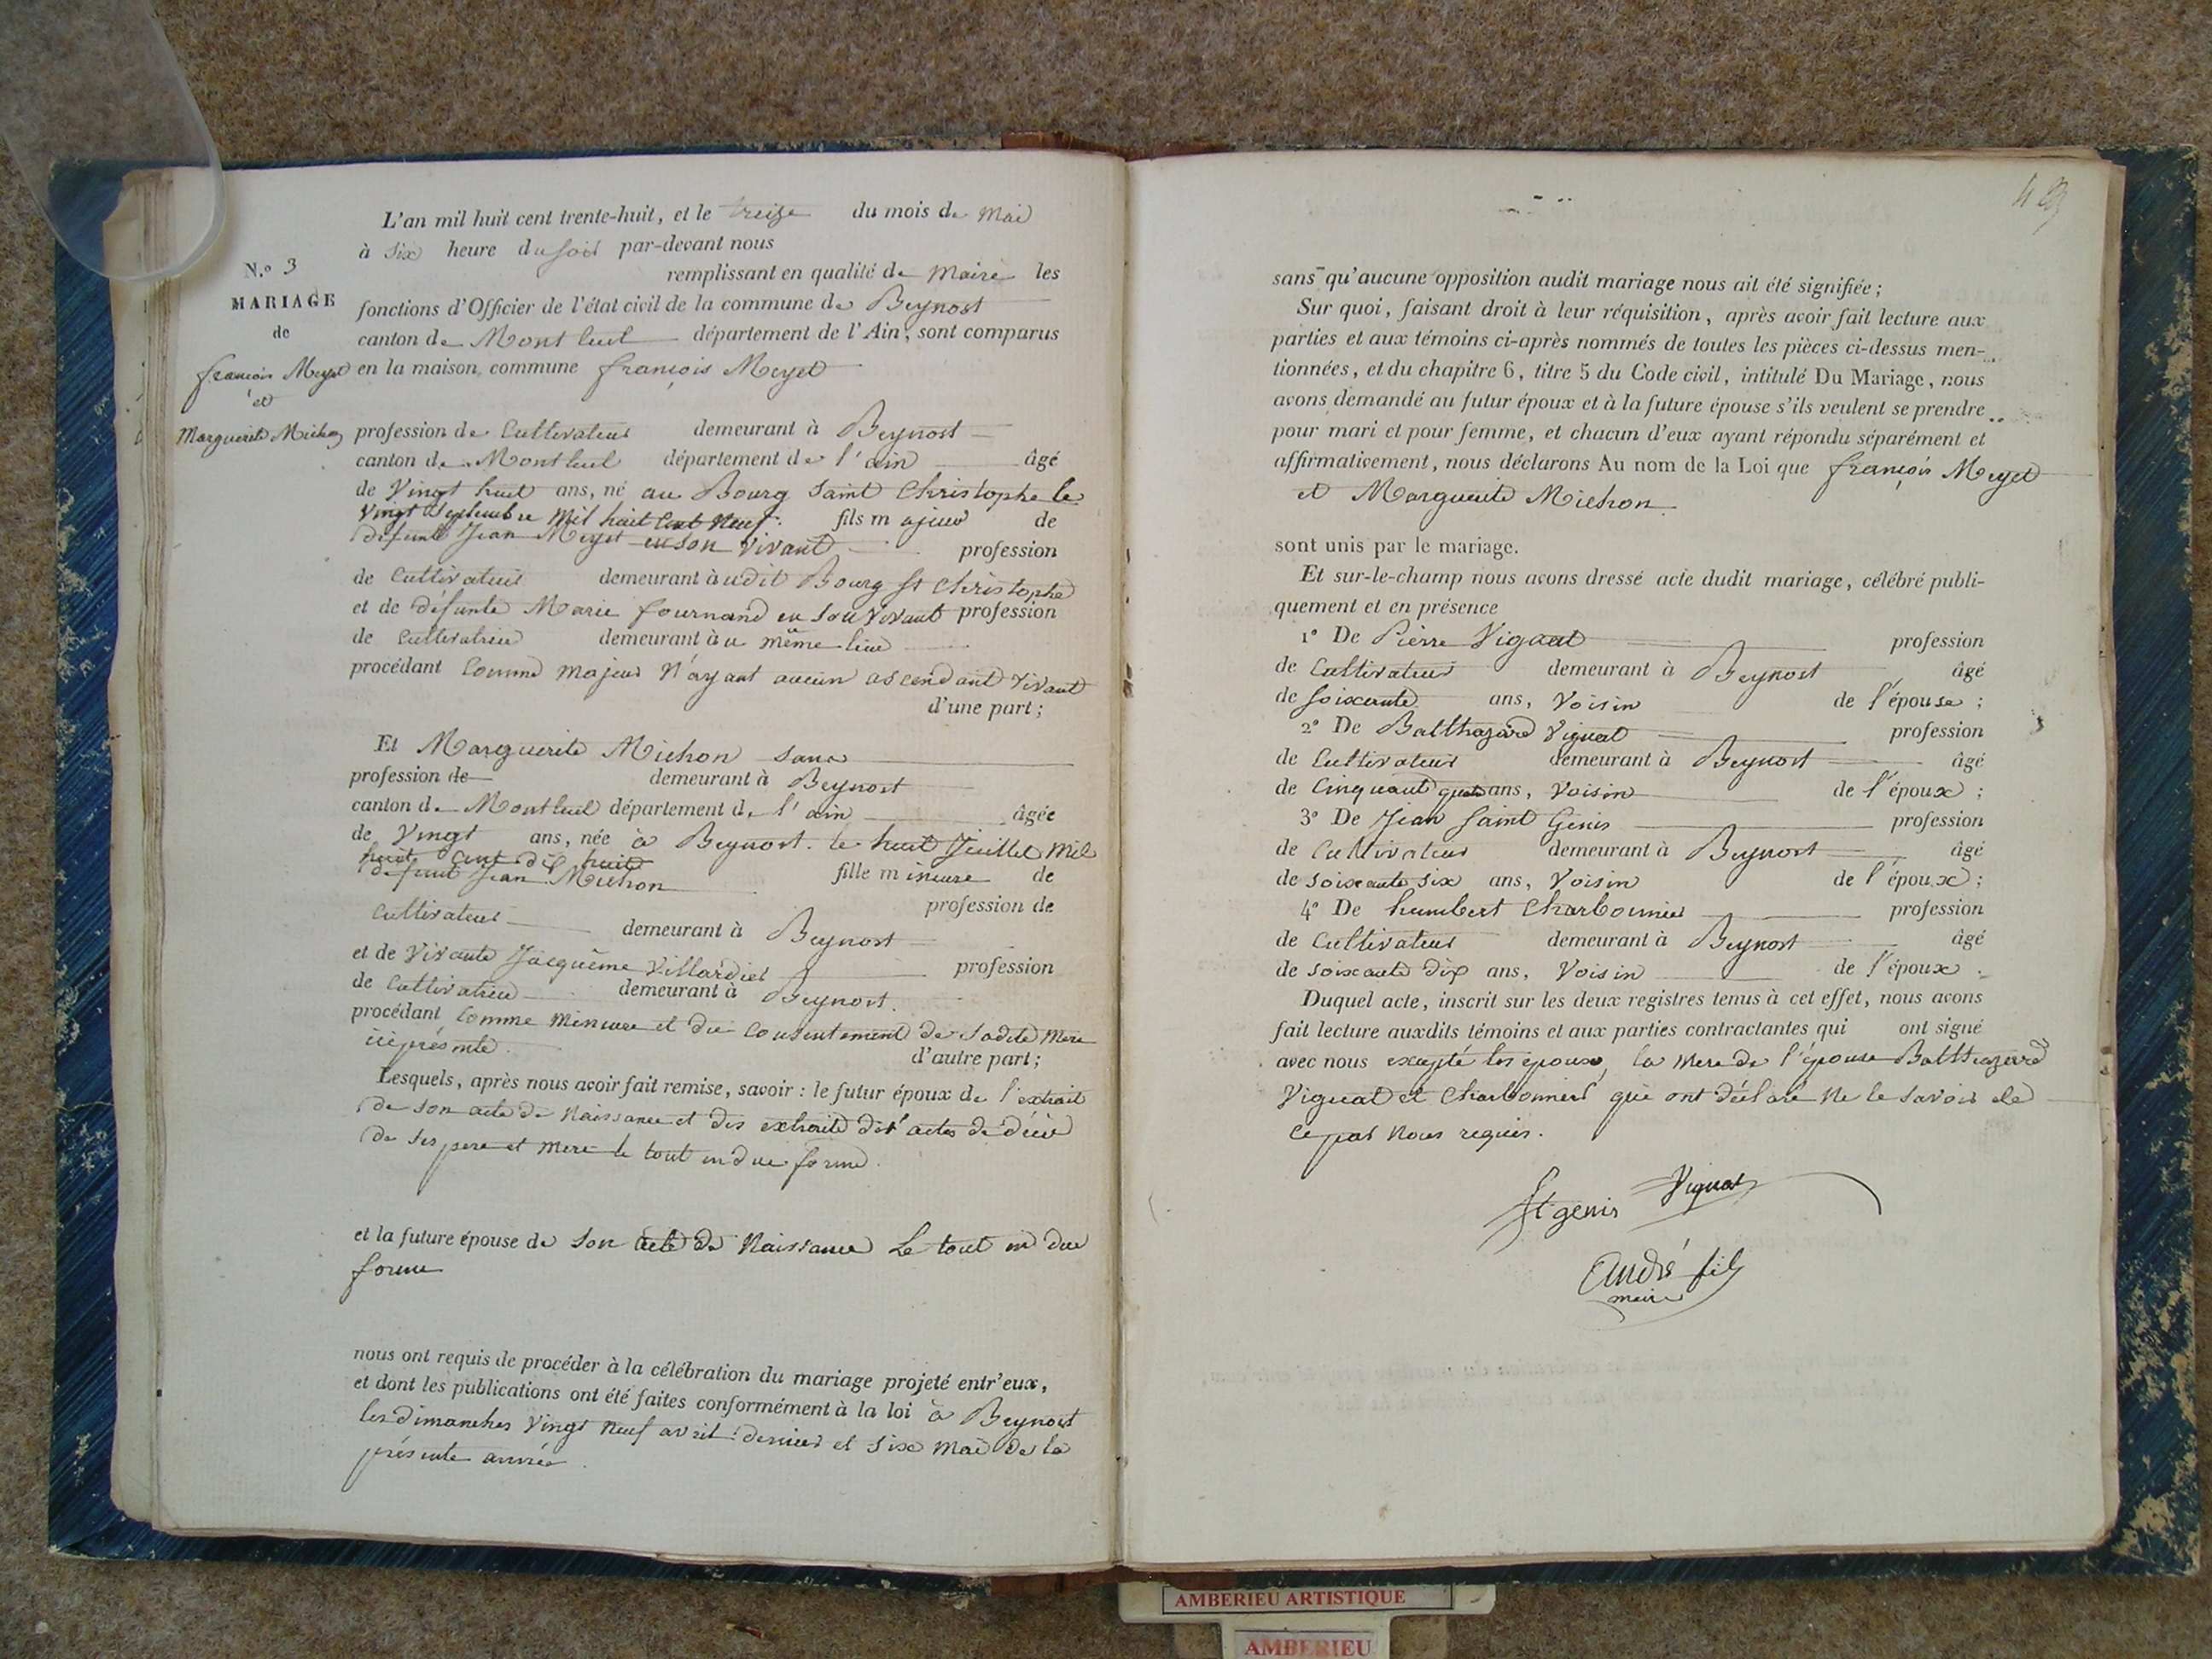 L'an mil huit cent trente-huit, et le treize du mois de Mai
à Six heure du soir par-devant nous
remplissant en qualité de Maire les
fonctions d'Officier de l'état civil de la commune de Beynost
canton de Montluel département de l'Ain, sont comparus
en la maison commune françois Meyet
N.° 3
MARIAGE
de
françois Meyet
et
Marguerite Michon
profession de Cultivateur demeurant à Beynost
canton de Montluel département de l'ain âgé
de Vingt huit ans, né au Bourg Saint Christophe le
Vingt Septembre Mil huit Cent Neuf. fils majeur de
défunt Jean Meyet en son vivant profession
de Cultivateur demeurant audit Bourg St Christophe
et de défunte Marie fournand en Son Vivant profession
de Cultivatrice demeurant au même lieu
procédant Comme Majeur N'ayant aucun ascendant Vivant
d'une part;
Et Marguerite Michon Sans
profession de demeurant à Beynost
canton de Montluel département de l'ain âgée
de Vingt ans, née à Beynost. le huit Juillet Mil
huit Cent dix huit
fille mineure de
défunt Jean Michon
profession de
Cultivateur demeurant à Beynost
et de Vivante Jacquême Villardier profession
de Cultivatrice demeurant à Beynost.
procédant Comme Mineure et du Consentement de Sadite Mere
ici présente.
d'autre part;
Lesquels, après nous avoir fait remise, savoir: le futur époux de l'extrait
de son acte de Naissance et des extraits des actes de décès
de Ses pere et Mere le tout en due forme.
et la future épouse de Son acte de Naissance Le tout en due
forme
nous ont requis de procéder à la célébration du mariage projeté entr'eux,
et dont les publications ont été faites conformément à la loi à Beynost
les dimanches Vingt Neuf avril dernier et Six Mai de la
présente année.
49
sans qu'aucune opposition audit mariage nous ait été signifiée;
Sur quoi, faisant droit à leur réquisition, après avoir fait lecture aux
parties et aux témoins ci-après nommés de toutes les pièces ci-dessus men-
tionnées, et du chapitre 6, titre 5 du Code civil, intitulé Du Mariage, nous
avons demandé au futur époux et à la future épouse s'ils veulent se prendre
pour mari et pour femme, et chacun d'eux ayant répondu séparément et
affirmativement, nous déclarons Au nom de la Loi que françois Meyet
et Marguerite Michon
sont unis par le mariage.
Et sur-le-champ nous avons dressé acte dudit mariage, célébré publi-
quement et en présence
1° De Pierre Vignat profession
de Cultivateur demeurant à Beynost âgé
de Soixante ans, Voisin de l'épouse;
2° De Balthazard Vignat profession
de Cultivateur demeurant à Beynost âgé
de Cinquante quatre ans, Voisin de l'époux;
3° De Jean Saint Genis profession
de Cultivateur demeurant à Beynost âgé
de soixante six ans, Voisin de l'époux;
4° De humbert Charbonnier profession
de Cultivateur demeurant à Beynost âgé
de soixante dix ans, Voisin de l'époux.
Duquel acte, inscrit sur les deux registres tenus à cet effet, nous avons
fait lecture auxdits témoins et aux parties contractantes qui ont signé
avec nous excepté les époux, la Mere de l'épouse Balthazard
Vignat et Charbonnier qui ont déclaré Ne le savoir de
ce par Nous requis.
St genis Vignat
André fils
maire
AMBERIEU ARTISTIQUE
AMBERIEU